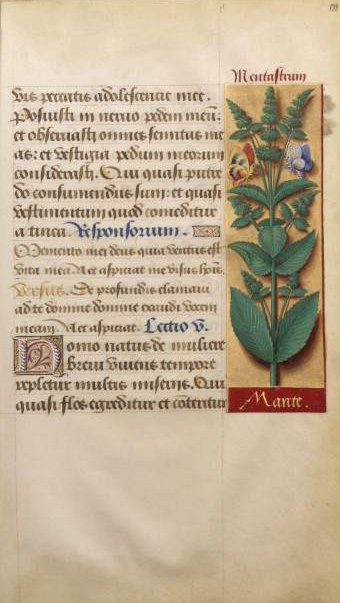 Mentastrum
vis peccatis adolescentie mee.
Posuisti in nervo pedem meu:
et observasti omnes semitas me
as: et vestigia pedum meorum
considerasti. Qui quasi putre
do consumendus sum: et quasi
vestimentum quod comeditur
a tinea. Responsorium.
Memento mei deus quia ventus est
vita mea. Nec aspiciat me visus
Versus. De profundis clamavi
ad te domine domine exaudi vocem
meam. Nec aspiciat. Lectio v.
Homo natus de muliere
brevi vivens tempore
repletur multis miseriis. Qui
quasi flos egreditur et conteritur
Mante.